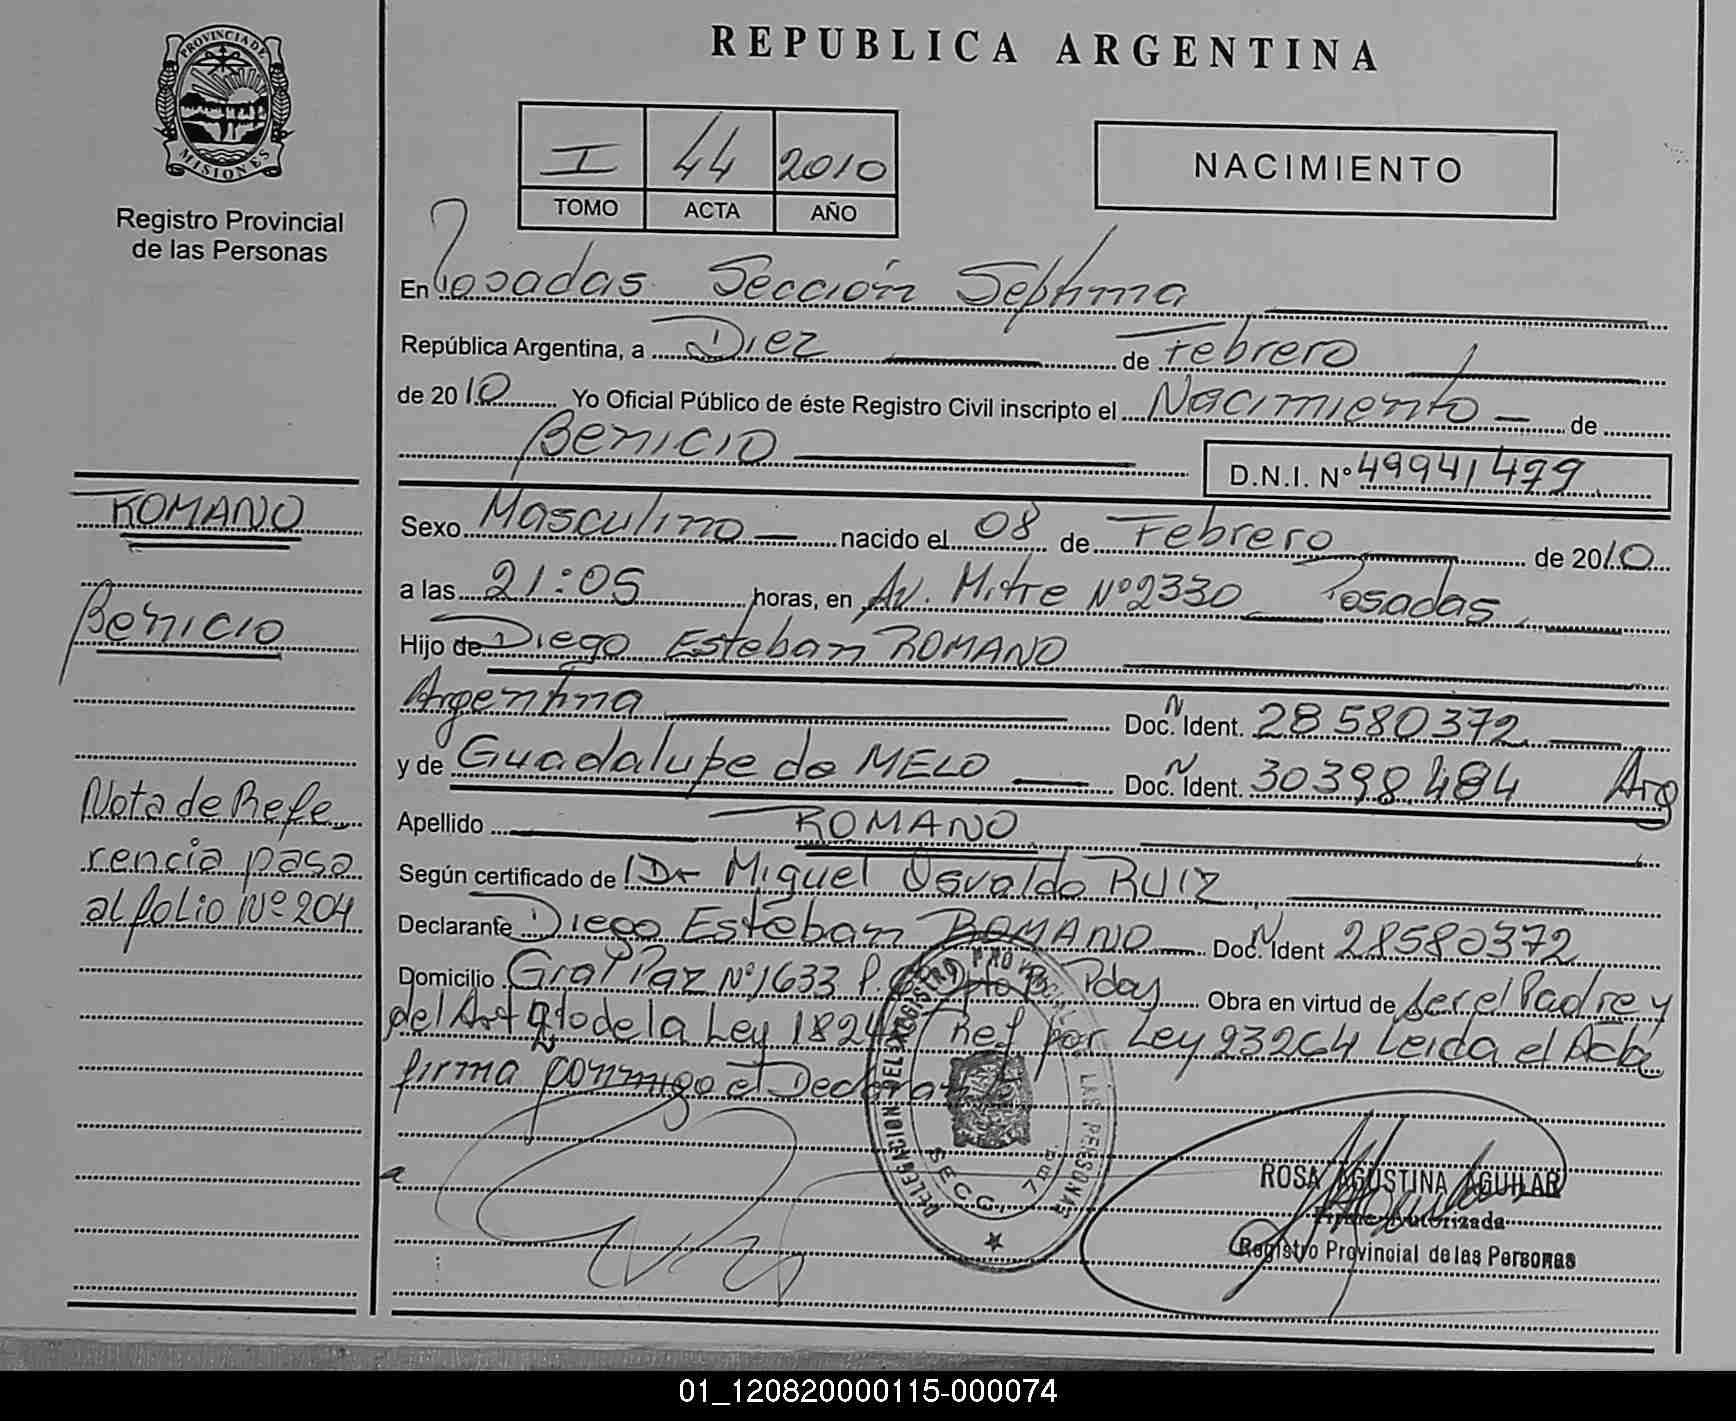 REPUBLICA ARGENTINA
PROVINCIA DE
MISIONES
Registro Provincial
de las Personas
I 44 2010
TOMO ACTA AÑO
NACIMIENTO
En Posadas Sección Séptima
República Argentina, a Diez de Febrero
de 2010 Yo Oficial Público de éste Registro Civil inscripto el Nacimiento de
Benicio
D.N.I. Nº 49941479
ROMANO
Benicio
Nota de Refe
rencia pasa
al folio Nº 204
Sexo Masculino nacido el 08 de Febrero de 2010
a las 21:05 horas, en Av. Mitre Nº 2330 Posadas
Hijo de Diego Esteban ROMANO
Argentina Doc. N Ident. 28580372
y de Guadalupe do MELO Doc. N Ident. 30398484 Arg
Apellido ROMANO
Según certificado de Dr Miguel Osvaldo RUIZ
Declarante Diego Esteban ROMANO Doc. N Ident 28580372
Domicilio Gral Paz Nº 1633 Pdas Obra en virtud de ser el Padre y
del Art de la Ley 1824 Ref por Ley 23264 Leida el Acta
firma conmigo el Declarante
DELEGACION DEL REGISTRO PROVINCIAL LAS PERSONAS
SECC. 7ma.
ROSA AGUSTINA AGUILAR
Firma Autorizada
Registro Provincial de las Personas
01_120820000115-000074